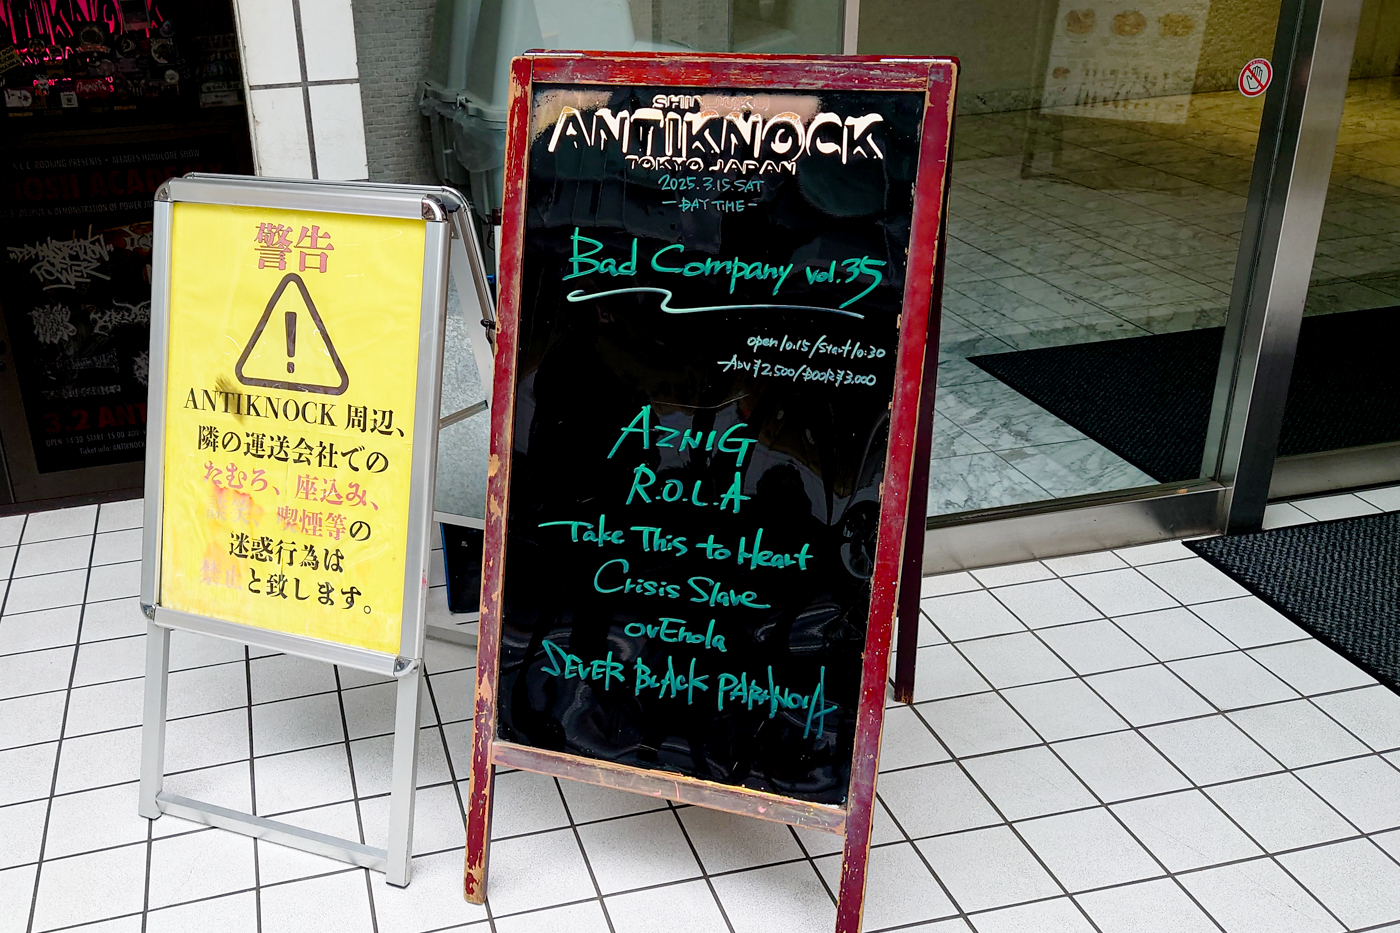 警告
ANTIKNOCK 周辺、
隣の運送会社での
たむろ、座込み、
喫煙等の
迷惑行為は
禁止と致します。
ANTIKNOCK
TOKYO JAPAN
2025.3.15.SAT
-DAY TIME-
Bad Company vol.35
open10:15/Start10:30
ADV ¥2,500/DOOR ¥3,000
AZNIG
R.O.L.A
Take This to Heart
Crisis Slave
ovEnola
SEVER BLACK PARANOIA